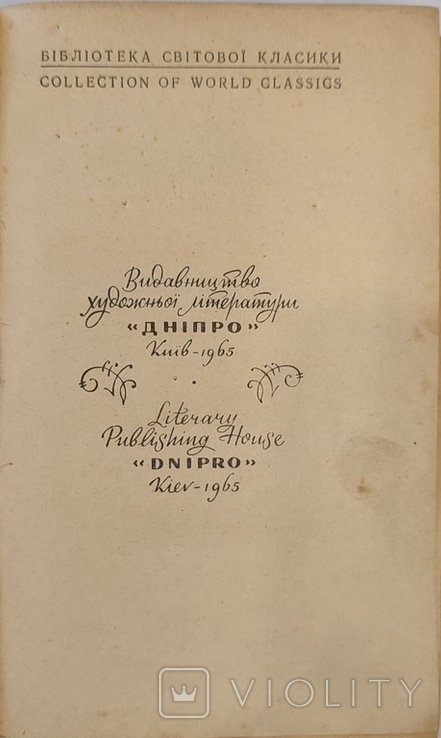 БІБЛІОТЕКА СВІТОВОЇ КЛАСИКИ
COLLECTION OF WORLD CLASSICS
Видавництво
художньої літератури
«ДНІПРО»
Київ-1965
Literary
Publishing House
«DNIPRO»
Kiev-1965
VIOLITY